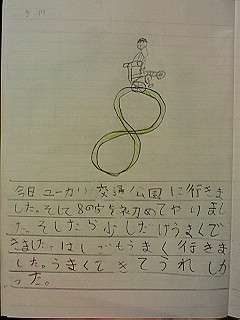 今日ユーカリ交通公園に行きま
した。そして8の字を初めてやりまし
た。そしたら少しだけうまくで
きました。はしごもうまく行きま
した。うまくできてうれしか
った。